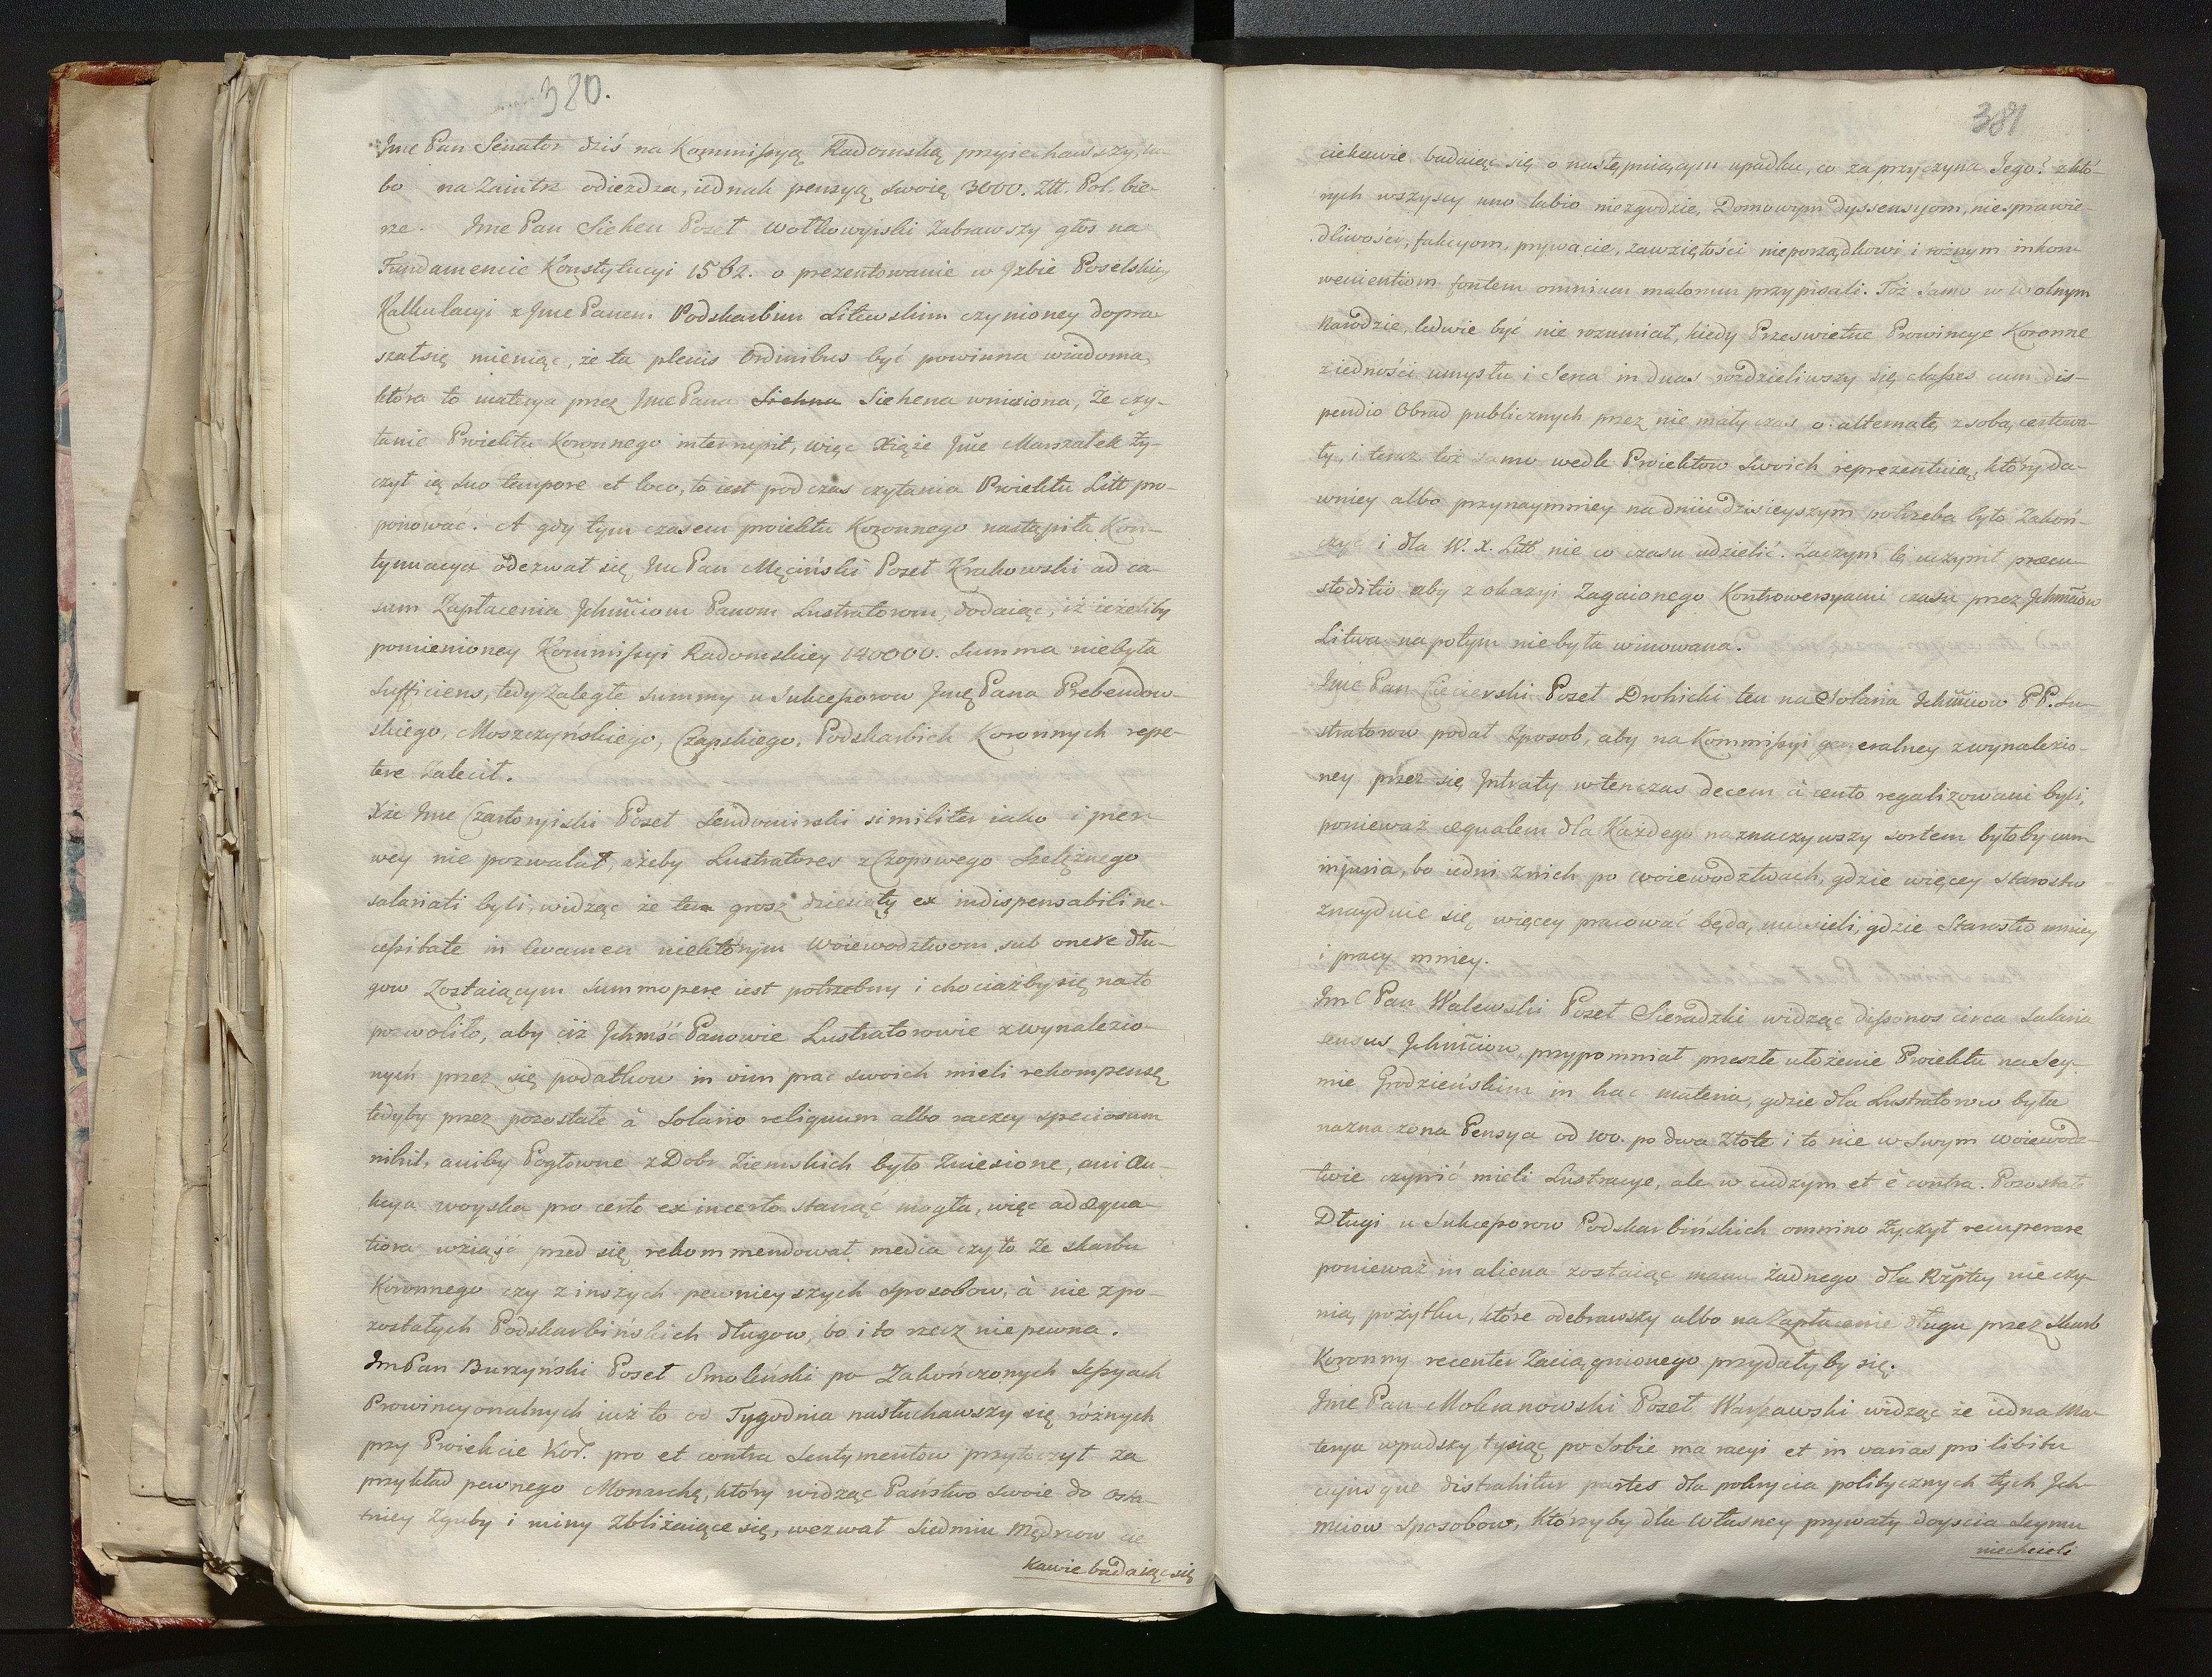 380.
Jme Pan Senator dziś na Kommissyą Radomską przyiechawszy, lu-
bo na Zaiutrz odiezdza, iednak pensyą swoię 3000. Ztt. Pol. bie-
rze. Jme Pan Siehen Poseł Wołkowyiski Zabrawszy głos na
Fundamencie Konstytucyi 1562. o prezentowanie w Jzbie Poselskiey
Kalkulacyi z Jme Panem Podskarbim Litewskim czynioney dopra-
szał się mieniąc, że ta plenis Ordinibus być powinna wiadoma,
która to materya przez Jme Pana Siehena wnieziona, że czy-
tanie Proiektu Koronnego interrupit, więc Xiąże Jme Marszałek ży-
czył ią suo tempore et loco, to iest podczas czytania Proiektu Litt pro-
ponować. A gdy tym czasem proiektu Koronnego nastąpiła Kon-
tynuacya odezwał się Jm Pan Męciński Poseł Krakowski ad ca-
sum Zapłacenia Jchmciom Panom Lustratorom, dodaiąc, iż ieżeliby
pomienioney Kommissyi Radomskiey 140000. Summa niebyła
sufficiens, tedy Zaległe summy u Sukcessorow Jmę Pana Prebendow-
skiego, Moszczyńskiego, Czapskiego, Podskarbich Koronnych repe-
tere Zalecił.
Xże Jme Czartoryiski Poseł Sendomirski similiter iako i pier-
wey nie pozwalał, ażeby Lustratores z Czopowego Szelężnego
salariati byli, widząc że ten grosz dziesięty ex indispensabili ne-
cessitate in levamen niektórym Woiewodztwom sub onere dłu-
gow Zostaiącym summopere iest potrzebny i chociażby się na to
pozwoliło, aby ciż Jchmść Panowie Lustratorowie z wynalezio-
nych przez się podatkow in vim prac swoich mieli rekompensę
tedyby przez pozostałe à Solario reliquum albo raczey speciosum
nihil, aniby Pogłowne z Dobr Ziemskich było Zniesione, ani Au-
kcya woyska pro certo ex incerto stanąć mogła, więc adæqua-
tiora wziąść przed się rekommendował media czy to ze skarbu
Koronnego czy z inszych pewnieyszych sposobow, à nie z po-
zostałych Podskarbińskich długow, bo i to rzecz niepewna.
Jm Pan Burzyński Poseł Smoleński po Zakończonych Sessyach
Prowincyonalnych iuż to od Tygodnia nasłuchawszy się różnych
przy Proiekcie Kor. pro et contra Sentymentow przytoczył za
przykład pewnego Monarchę, który widząc Państwo swoie do osta-
tniey Zguby i ruiny zbliżaiące się, wezwał siedmiu Mędrcow cie
kawie badaiąc się
381
ciekawie badaiąc się o następuiącym upadku, co za przyczyna Jego? z któ-
rych wszyscy uno labio niezgodzie, Domowym dyssensyom, niesprawie-
dliwości, fakcyom, prywacie, zawziętości nieporządkowi i różnym inkon-
wenientiom fontem omnium malorum przypisali. Toż samo w Wolnym
Narodzie, ledwie być nie rozumiał, kiedy Przeswietne Prowincye Koronne
z iedności umysłu i Serca in duas rozdzieliwszy się classes cum dis-
pendio Obrad publicznych przez nie mały czas o alternatę z sobą certowa-
ły, i teraz toż samo wedle Proiektow swoich reprezentuią, który da-
wniey albo przynaymniey na dniu dzisieyszym potrzeba było Zakoń-
czyć i dla W. X. Litt nie co czasu udzielić. Zaczym tę uczynił præcu-
stoditio aby z okazyi Zagaionego Kontrowersyami czasu przez Jchmciow
Litwa na potym nie była winowana.
Jme Pan Ciecierski Poseł Drohicki ten na Solaria Jchmciow PP. Lu-
stratorow podał Sposob, aby na Kommissyi generalney z wynalezio-
ney przez się Jntraty wtenczas decem à cento regalizowani byli,
ponieważ æqualem dla Każdego naznaczywszy sortem byłoby cum
injuria, bo iedni z nich po woiewodztwach, gdzie więcey Starostw
znayduie się więcey pracować będą musieli, gdzie Starostw mniey
i pracy mniey.
Jmć Pan Walewski Poseł Sieradzki widząc dissonos circa Salaria
sensus Jchmciow, przypomniał przeszłe ułożenie Proiektu na Sey-
mie Grodzieńskim in hac materia, gdzie dla Lustratorow była
naznaczona Pensya od 100. po dwa Złote i to nie w Swym Woiewodz-
twie czynić mieli Lustracye, ale w cudzym et è contra. Pozostałe
Długi u Sukcessorow Podskarbińskich omnino życzył recuperare
ponieważ in aliena zostaiąc manu żadnego dla Rzptey nie czy-
nią pożytku, które odebrawszy albo na Zapłacenie długu przez Skarb
Koronny recenter Zaciągnionego przydałyby się.
Jme Pan Mokranowski Poseł Warszawski widząc że iedna Ma-
terya wpadszy tysiąc po Sobie ma racyi et in varias pro libitu
cujusque distrahitur partes dla pokrycia politycznych tych Jch-
mciow sposobow, którzyby dla własney prywaty doyscia Seymu
niechcieli